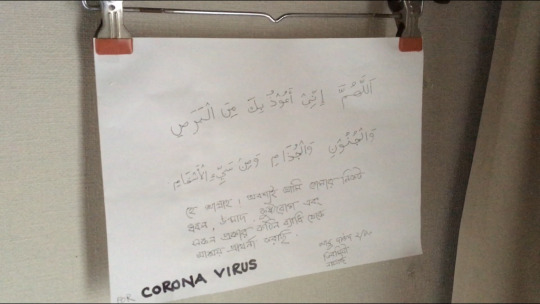 اَللَّهُمَّ اِنِّىْ اَعُوْذُ بِكَ مِنَ الْبَرَصِ
وَالْجُنُوْنِ وَالْجُذَامِ وَمِنْ سَيِّءِ الْاَسْقَامِ
হে আল্লাহ, অবশ্যই আমি তোমার নিকট
ধবল, উন্মাদ, কুষ্ঠরোগ এবং
সকল প্রকার জটিল ব্যাধি থেকে
আশ্রয় প্রার্থনা করছি.
আবু দাউদ ২/
তিরমিজি
FOR CORONA VIRUS